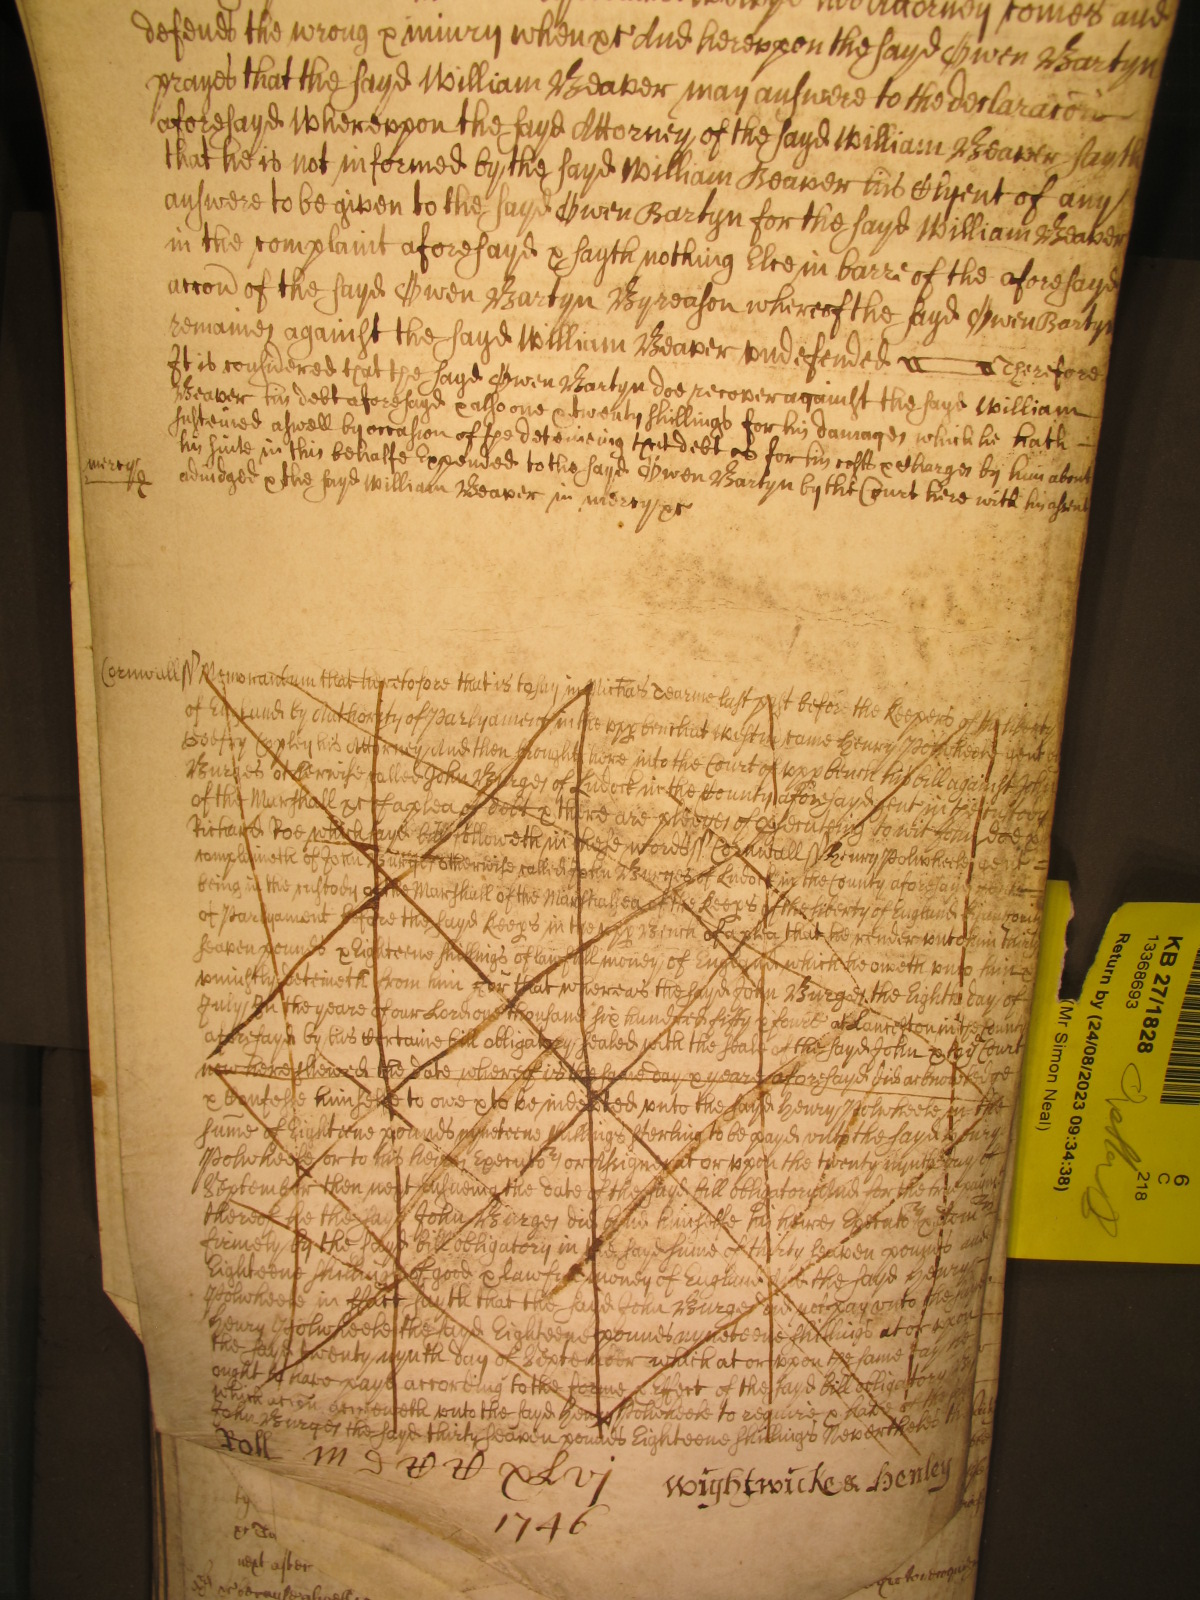 his Attorney comes and
defends the wrong & iniury when &c And herevpon the sayd Owen Bartyn
prayes that the sayd William Beaver may answere to the declaracon
aforesayd Wherevpon the sayd Attorney of the sayd William Beaver sayth
that he is not informed by the sayd William Beaver his Clyent of any
answere to be given to the sayd Owen Bartyn for the sayd William Beaver
in the complaint aforesayd & sayth nothing Else in barre of the aforesayd
accon of the sayd Owen Bartyn By reason whereof the sayd Owen Bartyn
remaines against the sayd William Beaver vndefended Therefore
It is considered that the sayd Owen Bartyn doe recover against the sayd William
Beaver his debt aforesayd & also one & twenty shillings for his damages which he hath
susteined aswell by occasion of the deteineing that debt as for his costs & charges by him about
his suite in this behalfe Expended to the sayd Owen Bartyn by the Court here with his assent
mercy
adiudged & the sayd William Beaver in mercy &c
Cornwall ss Memorandum that heretofore that is to say in Michas Tearme last past before the Keepers of the liberty
of England by Authority of Parlyament in the vpp bench at Westm came Henry Polwheele gent by
Coplay his Attorney And then brought here into the Court of vpp bench his bill against John
Burges otherwise called John Burges of Ludock in the County aforesayd gent in the custody
of the Marshall &c of a plea of debt & there are pledges of prosecuteing to wit John Doe &
Richard Roe which sayd bill followeth in these words ss Cornwall ss Henry Polwheele gent
complaineth of John Burges otherwise called John Burges of Ludock in the County aforesayd gent
being in the custody of the Marshall of the Marshalsea of the Keeps of the liberty of England by authority
of Parlyament before the sayd Keeps in the vpp Bench of a plea that he render vnto him thirty
seaven pounds & Eighteene shillings of lawfull money of England which he oweth vnto him &
vniustly deteineth from him For that whereas the sayd John Burges the Eighth day of
July In the yeare of our Lord one thousand six hundred fifty & foure at Lanceston in the County
aforesayd by his Certaine bill obligatory sealed with the seale of the sayd John & to the Court
now here shewed the date whereof is the same day & yeare aforesayd did acknowledge
& Confesse himselfe to owe & to be indebted vnto the sayd Henry Polwheele in the
sume of Eighteene pounds nyneteene shillings sterling to be payd vnto the sayd Henry
Polwheele or to his heires Executors or Assignes at or vpon the twenty nynth day of
September then next ensueing the date of the sayd bill obligatory And for the true payment
thereof he the sayd John Burges did bynd himselfe his heires Executors &
firmely by the sayd bill obligatory in the sayd sume of thirty seaven pounds and
Eighteene shillings of good & lawfull money of England yet the sayd Henry
Polwheele in ffact sayth that the sayd John Burges did not pay vnto the sayd
Henry Polwheele the sayd Eighteene pounds nyneteene shillings at or vpon
the sayd twenty nynth day of September which at or vpon the same day he
ought to have payd according to the forme & effect of the sayd bill obligatory
which accon accreweth vnto the sayd Henry Polwheele to require & have of the sayd
John Burges the sayd thirty seaven pounds Eighteene shillings Neverthelesse the sayd
Roll xlvj Wightwicke & Henley
1746
next after
KB 27/1828
13368693
Return by (24/08/2023 09:34:38)
(Mr Simon Neal)
6
C
218